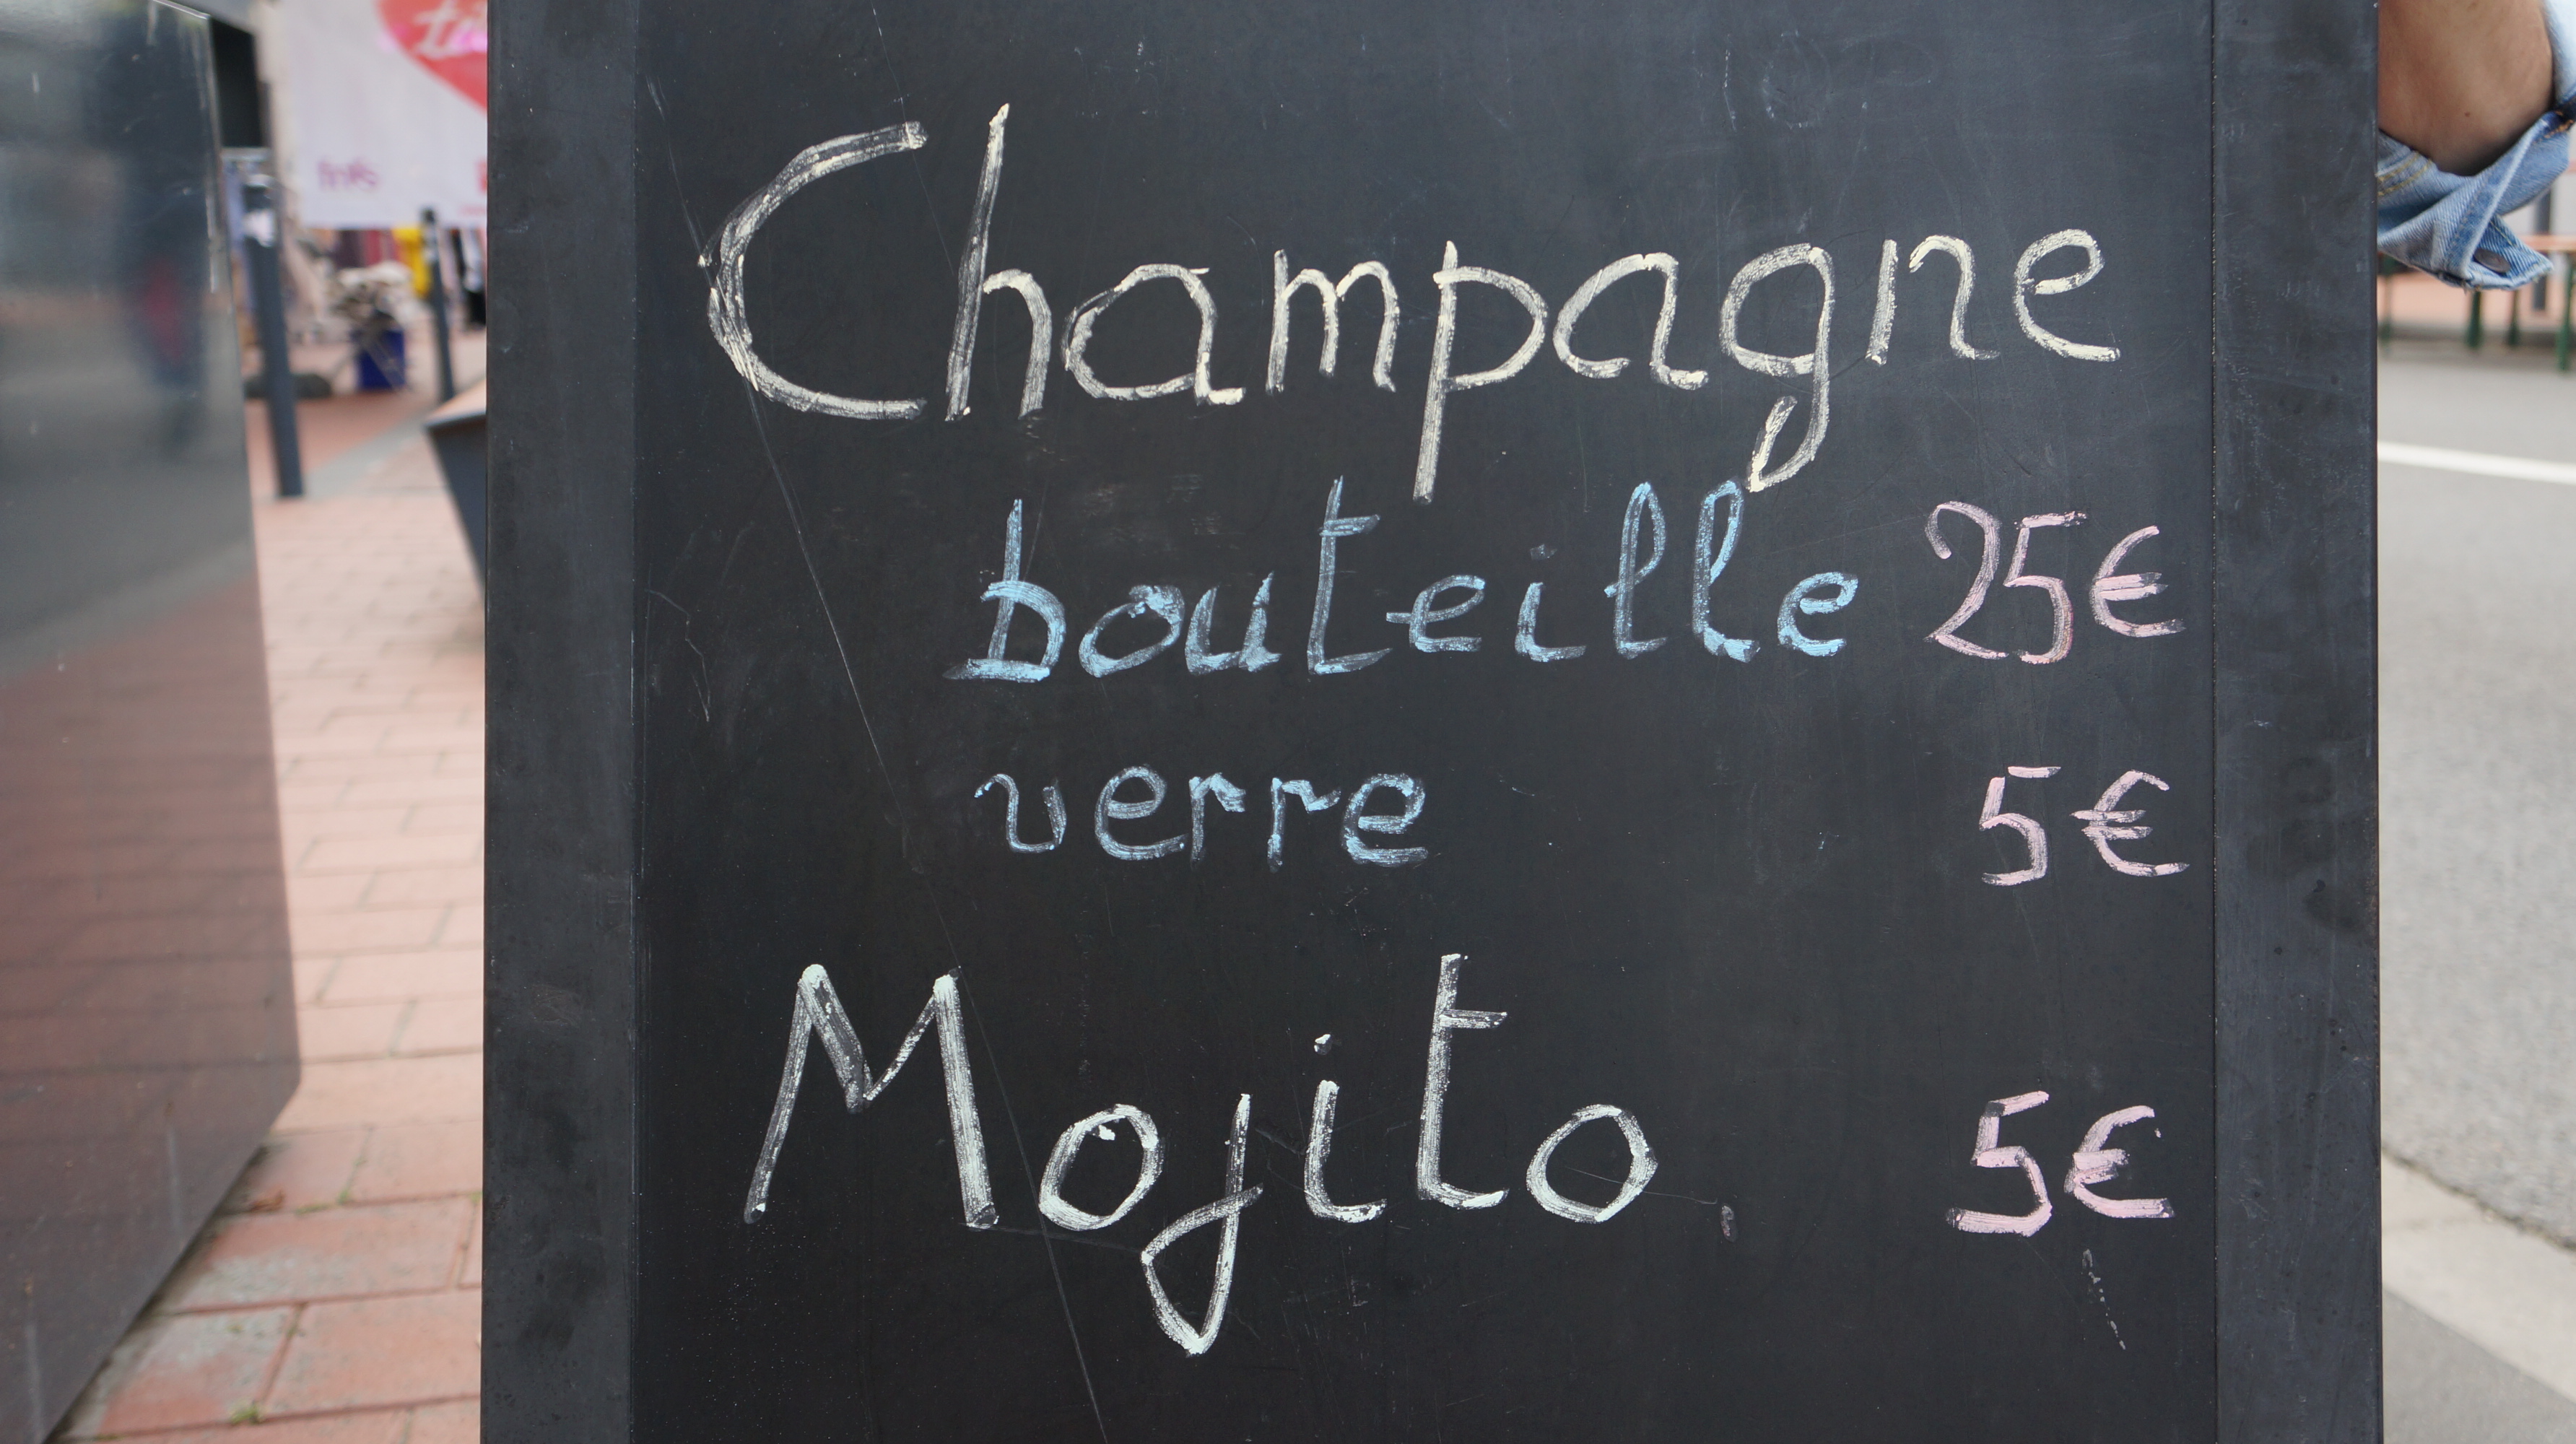 Champagne
bouteille 25€
verre 5€
Mojito 5€